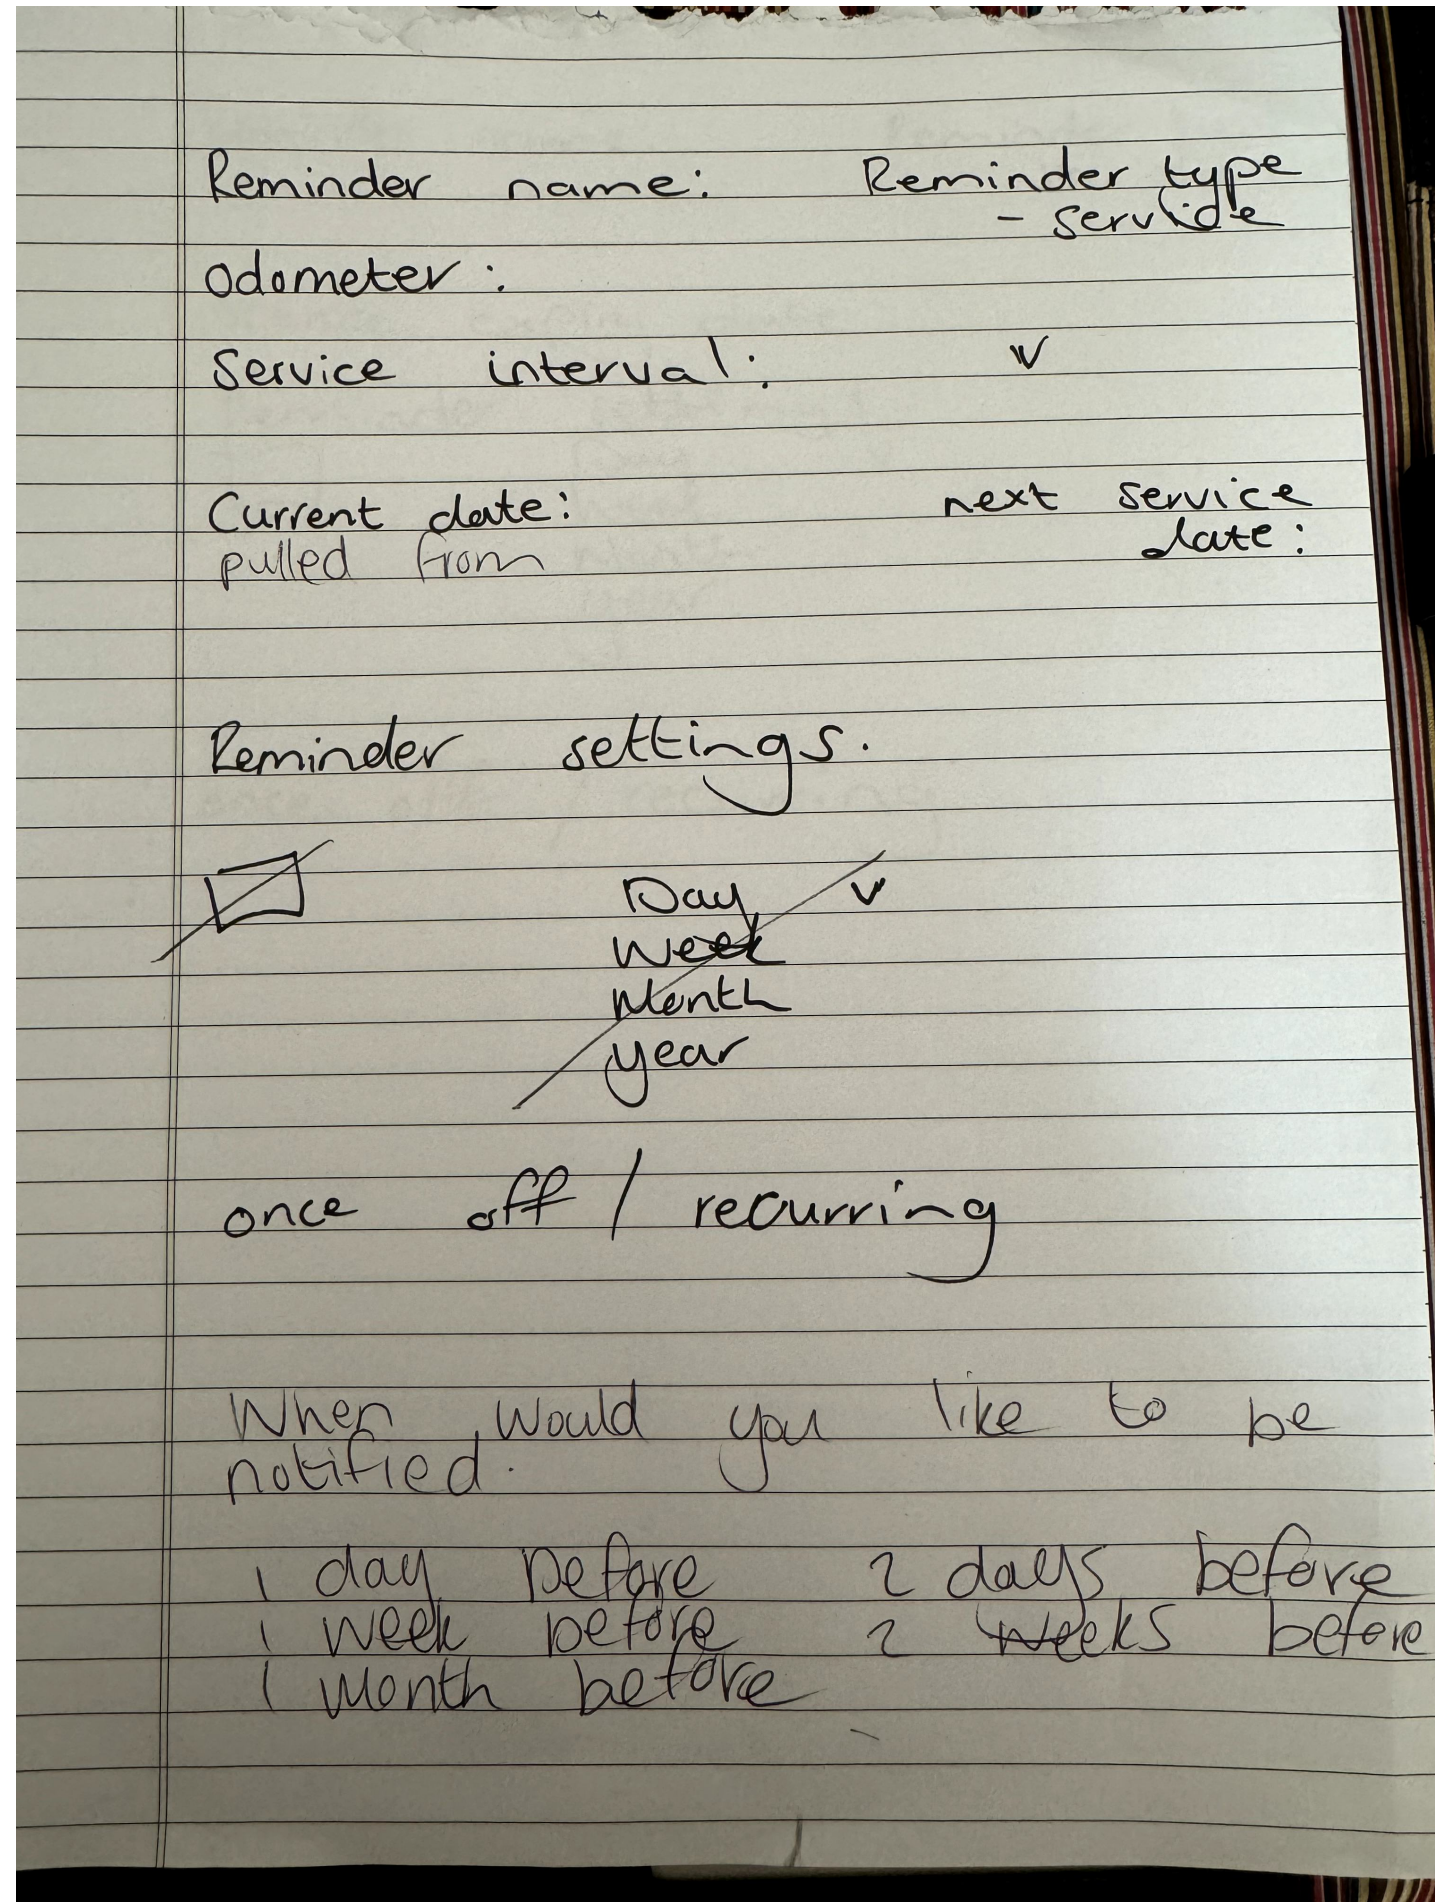 Reminder name: Reminder type
- service
Odometer:
Service interval: v
Current date: next service
pulled from date:
Reminder settings.
Day v
Week
Month
year
once off / recurring
When would you like to be
notified.
1 day before 2 days before
1 week before 2 weeks before
1 month before